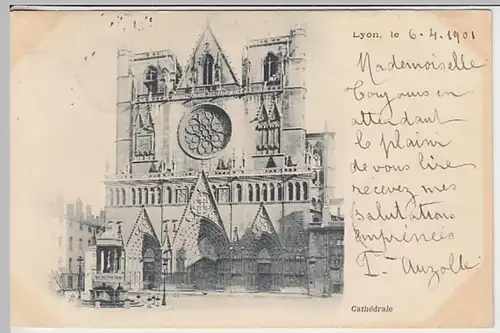 Lyon, le 6.4.1901
Mademoiselle
Toujours en
attendant
le plaisir
de vous lire
recevez mes
salutations
empréssées
Cathédrale